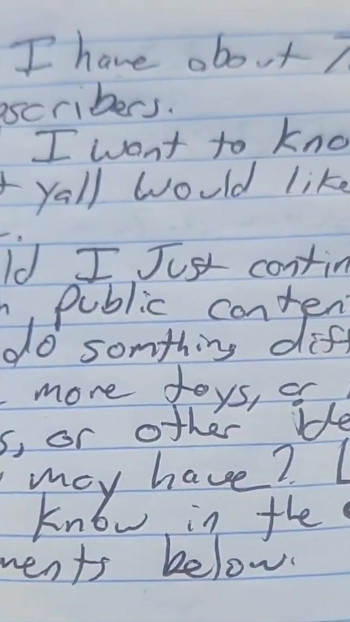 I have about 7
scribers.
I want to kno
yall would like
ld I Just contin
public conten
do somthing diff
more toys, or
s, or other ide
may have? L
know in the c
ments below.